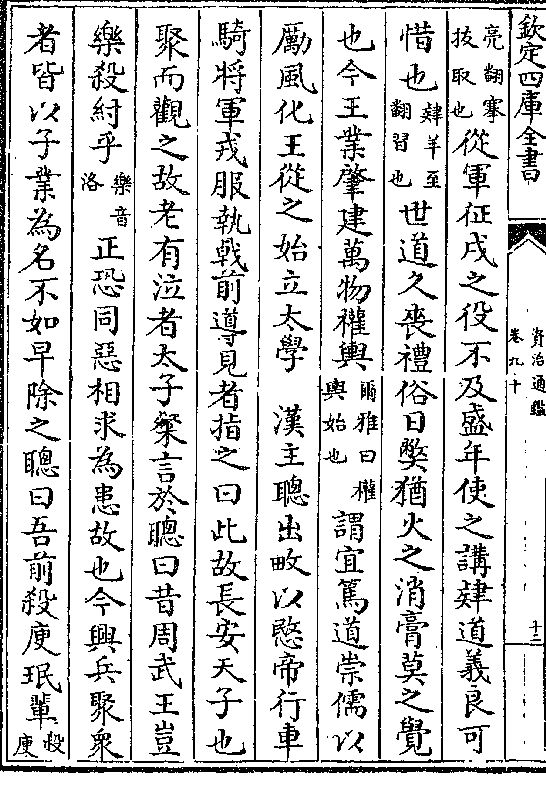 欽定四庫全書
資治通鑑
卷九十
十二
亮翻搴
拔取也從軍征戍之役不及盛年使之講肄道義良可
惜也肄羊至
翻習也世道久喪禮俗日弊猶火之消膏莫之覺
也今王業肇建萬物權輿爾雅曰權
輿始也謂宜篤道崇儒以
勵風化王從之始立太學　漢主聰出畋以愍帝行車
騎將軍戎服執戟前導見者指之曰此故長安天子也
聚而觀之故老有泣者太子粲言於聰曰昔周武王豈
樂殺紂乎樂音
洛正恐同惡相求為患故也今興兵聚衆
者皆以子業為名不如早除之聰曰吾前殺庾珉輩殺
庾